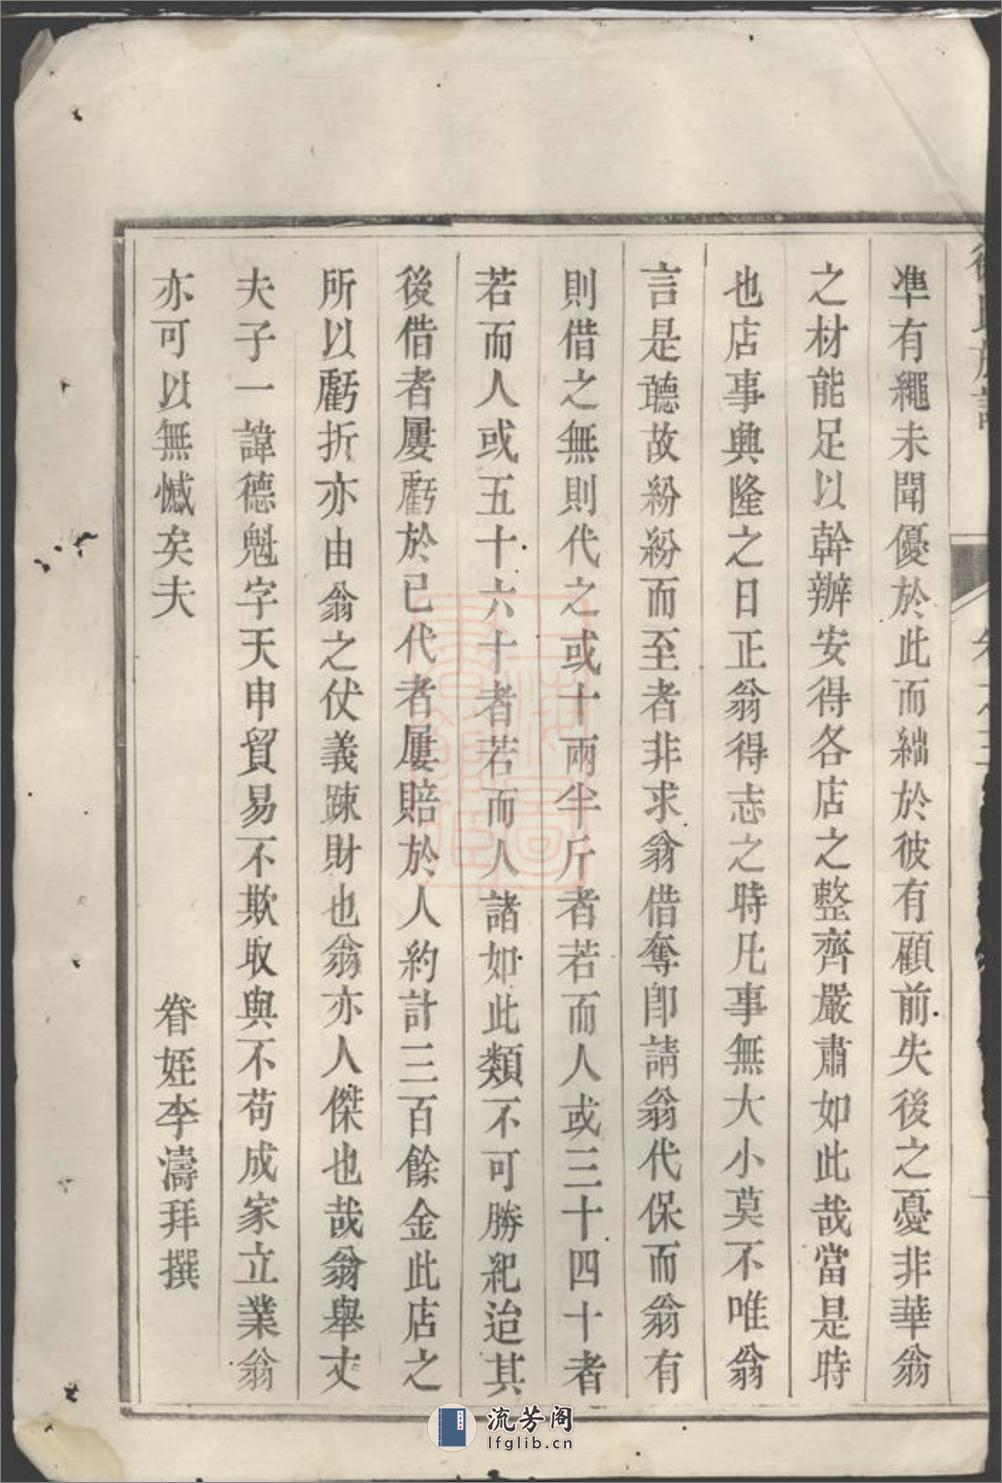 準有繩未聞優於此而絀於彼有顧前失後之憂非華翁
之材能足以幹辦安得各店之整齊嚴肅如此哉當是時
也店事興隆之日正翁得志之時凡事無大小莫不唯翁
言是聽故紛紛而至者非求翁借奪即請翁代保而翁有
則借之無則代之或十兩半斤者若而人或三十四十者
若而人或五十六十者若而人諸如此類不可勝紀迨其
後借者屢虧於已代者屢賠於人約計三百餘金此店之
所以虧折亦由翁之仗義踈財也翁亦人傑也哉翁舉丈
夫子一諱德魁字天申貿易不欺取與不苟成家立業翁
亦可以無憾矣夫
眷姪李濤拜撰
流芳阁
lfglib.cn